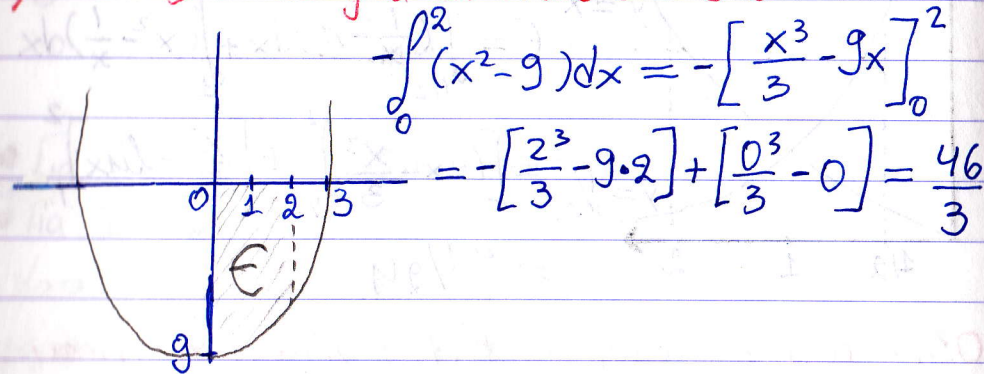 -∫₀² (x² - 9) dx = -[x³/3 - 9x]₀²
= -[2³/3 - 9·2] + [0³/3 - 0] = 46/3
0 1 2 3
E
9